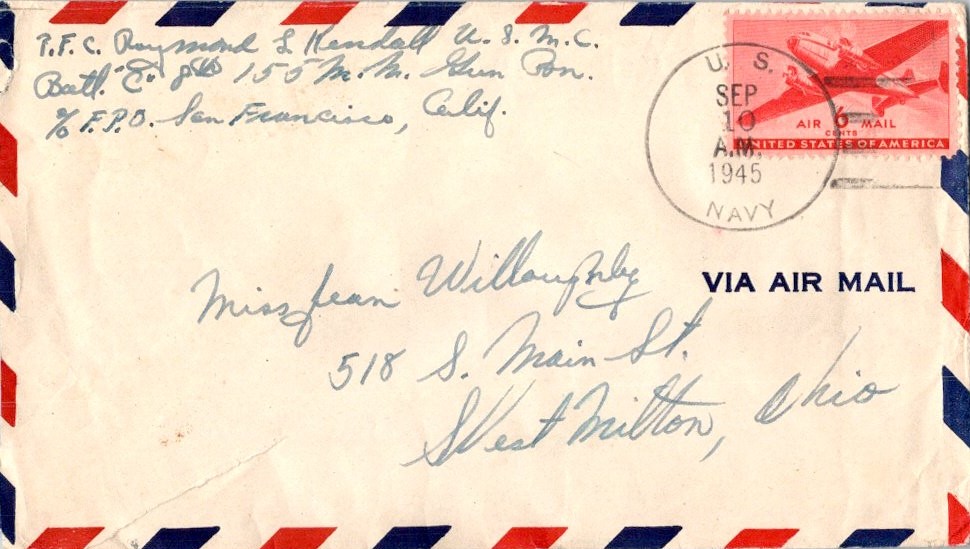 P.F.C. Raymond L Kendall U.S.M.C.
Batt. "C" 8th 155 M.M. Gun Bn.
% F.P.O. San Francisco, Calif.
U. S.
SEP
10
A.M.
1945
NAVY
AIR 6 MAIL
CENTS
UNITED STATES OF AMERICA
VIA AIR MAIL
Miss Jean Willoughby
518 S. Main St.
West Milton, Ohio